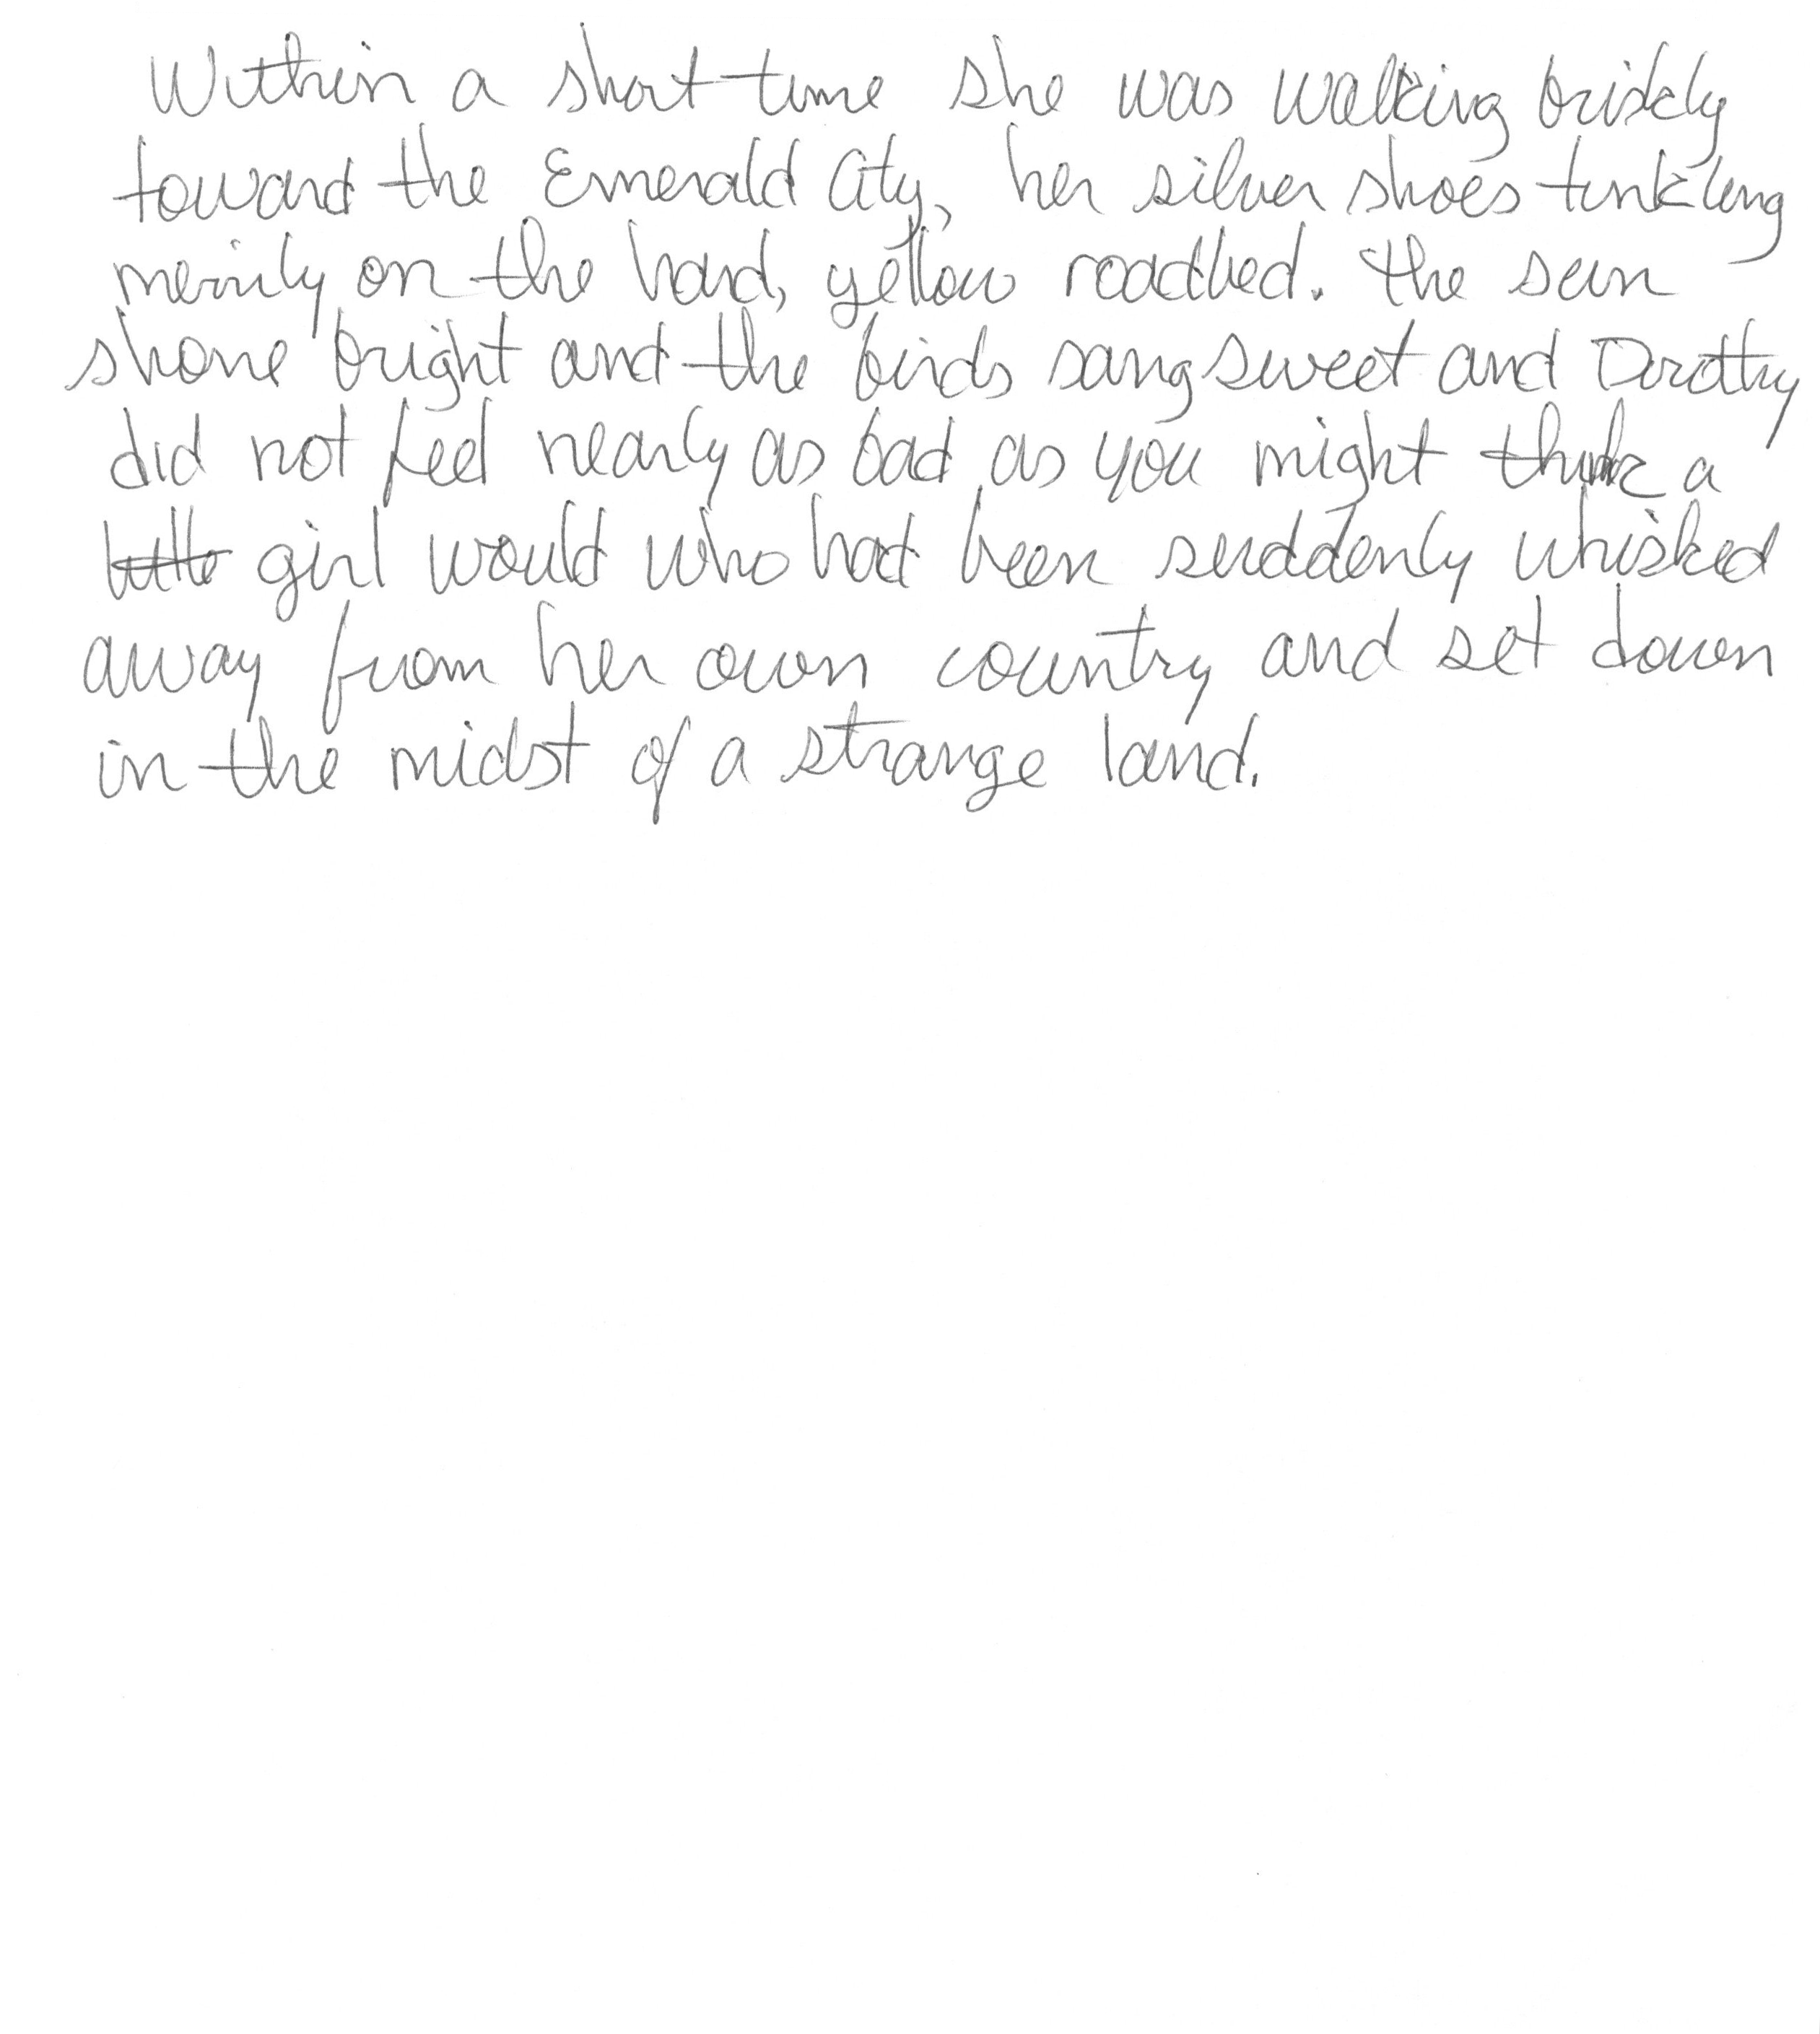 Within a short time she was walking briskly
toward the Emerald City, her silver shoes tinkling
merrily on the hard, yellow roadbed. The sun
shone bright and the birds sang sweet and Dorothy
did not feel nearly as bad as you might think a
little girl would who had been suddenly whisked
away from her own country and set down
in the midst of a strange land.